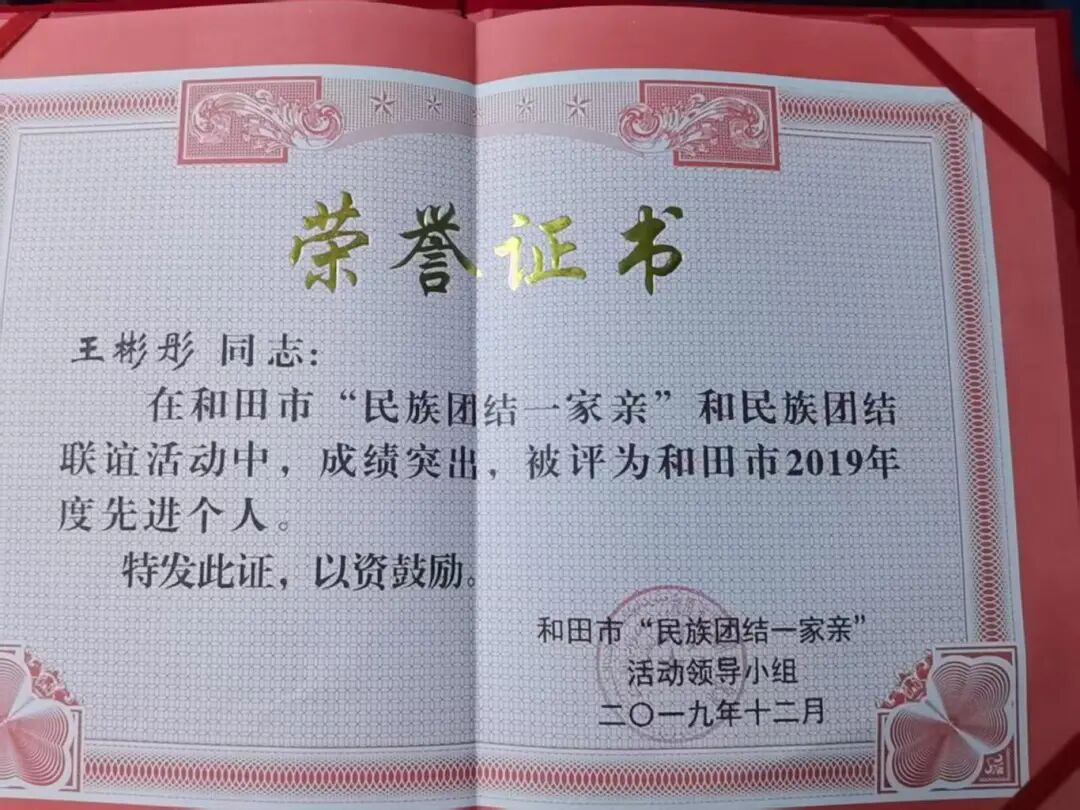 荣誉证书
王彬彤 同志：
在和田市“民族团结一家亲”和民族团结
联谊活动中，成绩突出，被评为和田市2019年
度先进个人。
特发此证，以资鼓励。
和田市“民族团结一家亲”
活动领导小组
二〇一九年十二月